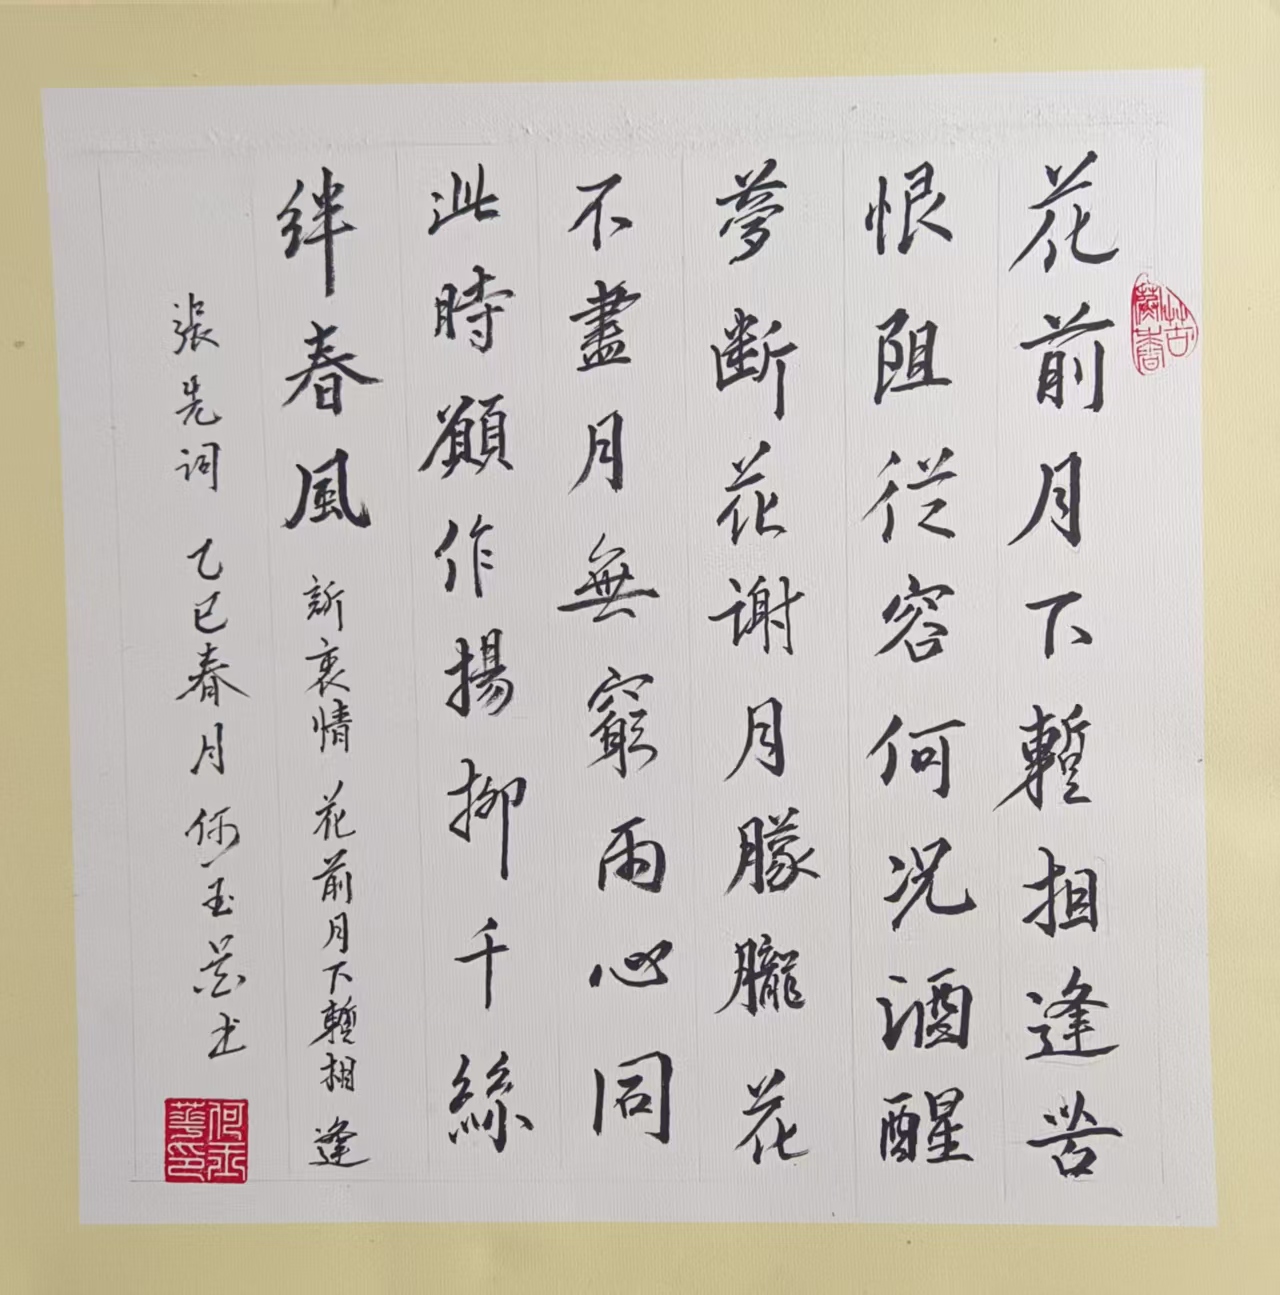 花前月下暫相逢苦
恨阻從容何況酒醒
夢斷花谢月朦朧花
不盡月無窮兩心同
此時願作揚柳千絲
絆春風 訴衷情 花前月下暫相逢
張先词 乙巳春月何玉華书
何玉華印